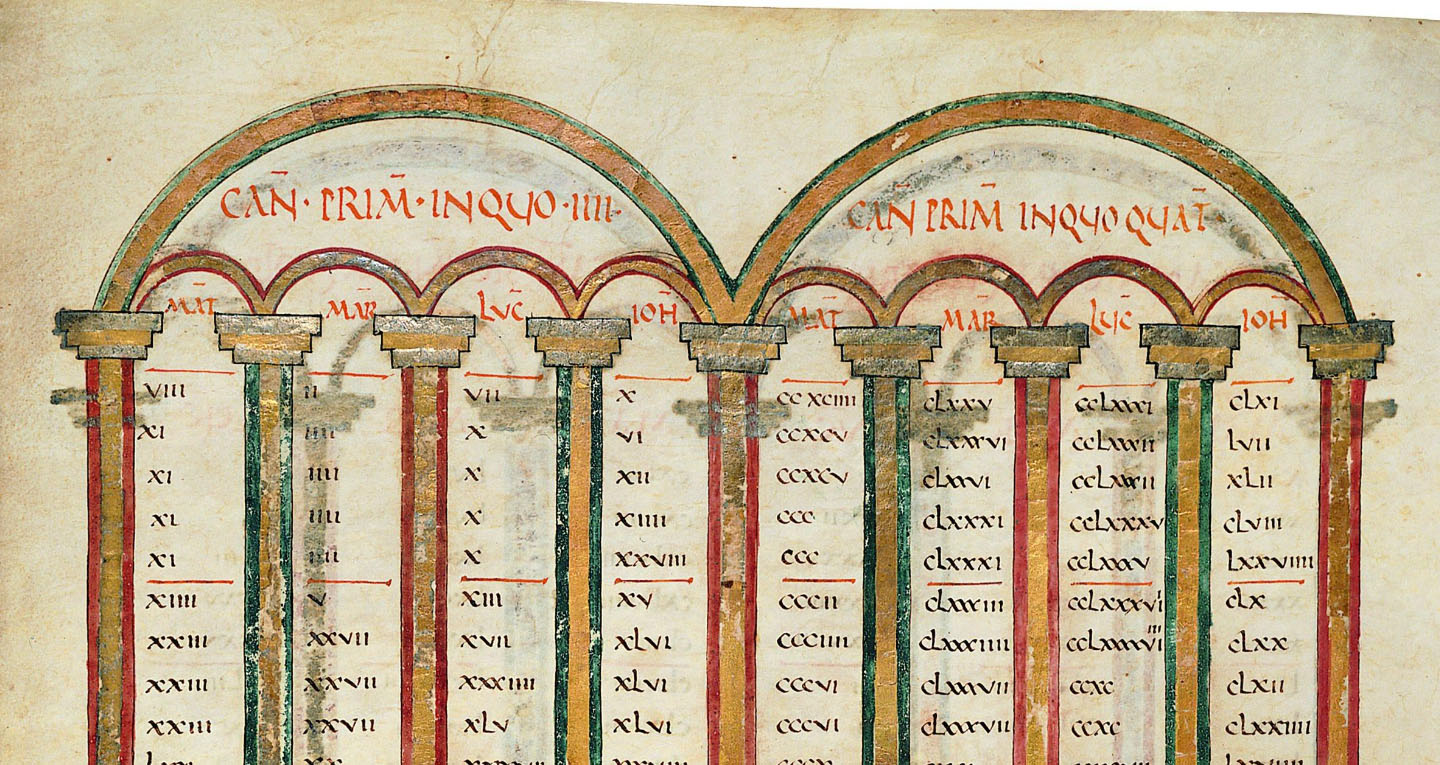 CAN̄·PRIM̄·INQUO·IIII·
MAT̄ MAR̄ LUC̄ IOH̄
VIII II VII X
XI IIII X VI
XI IIII X XII
XI IIII X XIIII
XI IIII X XXVIII
XIIII V XIII XV
XXIII XXVII XVII XLVI
XXIII XXVII XXXIIII XLVI
XXIII XXVII XLV XLVI
CAN̄ PRIM̄ INQUO QUAT̄
MAT̄ MAR̄ LUC̄ IOH̄
CCXCIIII CLXXV CCLXXXI CLXI
CCXCV CLXXVI CCLXXXII LVII
CCXCV CLXXVI CCLXXXII XLII
CCC CLXXXI CCLXXXV CLVIII
CCC CLXXXI CCLXXXV LXXVIIII
CCCII CLXXXIII CCLXXXVI CLX
CCCIIII CLXXXIIII CLXX
CCCVI CLXXXVII CCXC CLXII
CCCVI CLXXXVII CCXC CLXXIIII